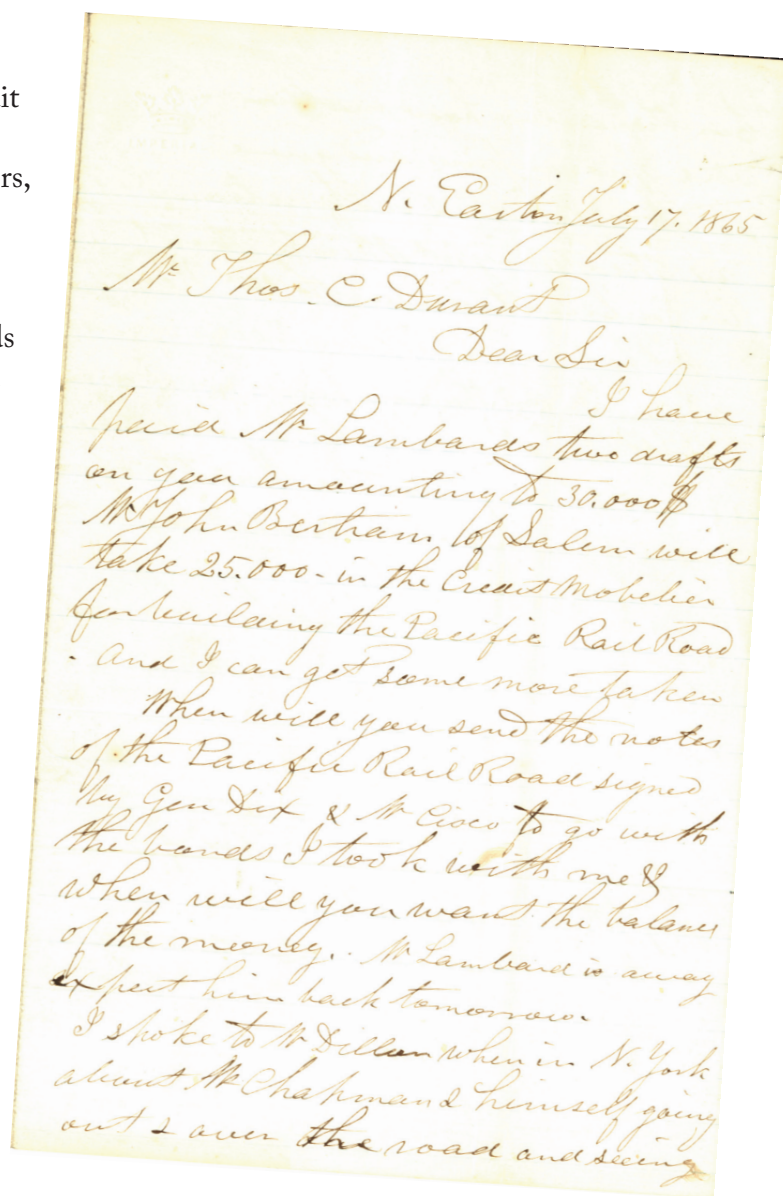 it
rs,
ls
N. Easton July 17. 1865
Mr Thos. C. Durant
Dear Sir
I have
paid Mr Lambards two drafts
on you amounting to 30.000 $
Mr John Bertram of Salem will
take 25.000 - in the Credit Mobelier
for building the Pacific Rail Road
- and I can get some more taken
When will you send the notes
of the Pacific Rail Road signed
by Gen Dix & Mr Cisco to go with
the bonds I took with me &
when will you want the balance
of the money. Mr Lambard is away
expect him back tomorrow.
I spoke to Mr Dillon when in N. York
about Mr Chapman & himself going
out & over the road and seeing